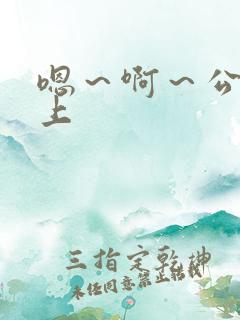 嗯～啊～公
上
三指定乾坤
未经同意禁止转载